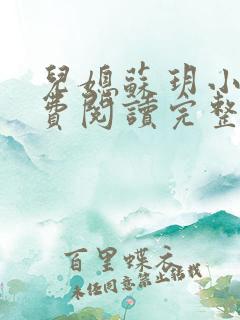 兒媳蘇玥小
費閱讀完整
百里蝶衣
未经同意禁止转载